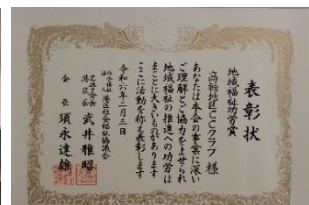 表彰状
地域福祉功労賞
高輪地区CCクラブ 様
あなたは本会の事業に深い
ご理解と協力をよせられ
地域福祉の推進への功労は
まことに大きいものがあります
ここに活動を称え表彰します
令和六年二月三日
社会福祉法人 港区社会福祉協議会
名誉会長
港区長 武井雅昭
会長 須永達雄